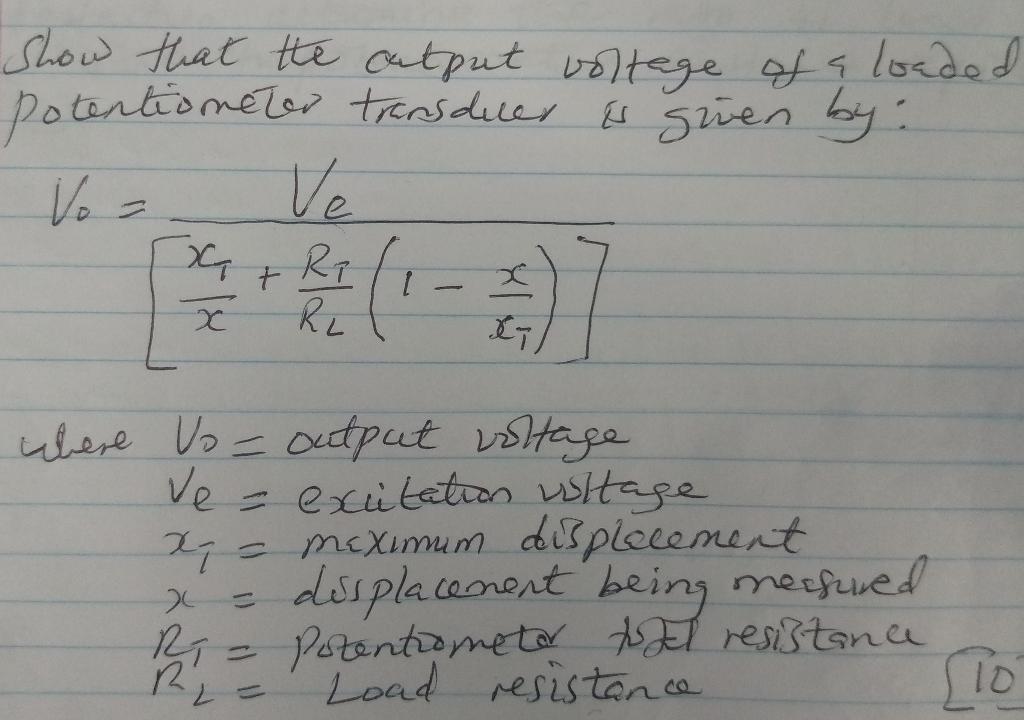 Show that the output voltage of a loaded
potentiometer transducer is given by:
Vo = Ve / [ xT/x + RT/RL ( 1 - x/xT ) ]
where Vo = output voltage
Ve = excitation voltage
xT = maximum displacement
x = displacement being measured
RT = Potentiometer total resistance
RL = Load resistance [10